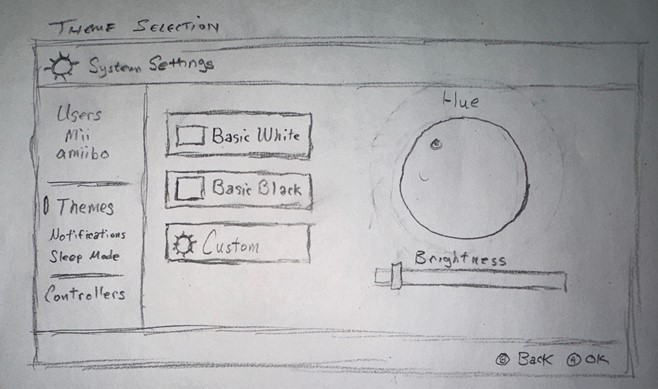 Theme Selection
System Settings
Users
Mii
amiibo
Themes
Notifications
Sleep Mode
Controllers
Basic White
Basic Black
Custom
Hue
Brightness
B Back A OK